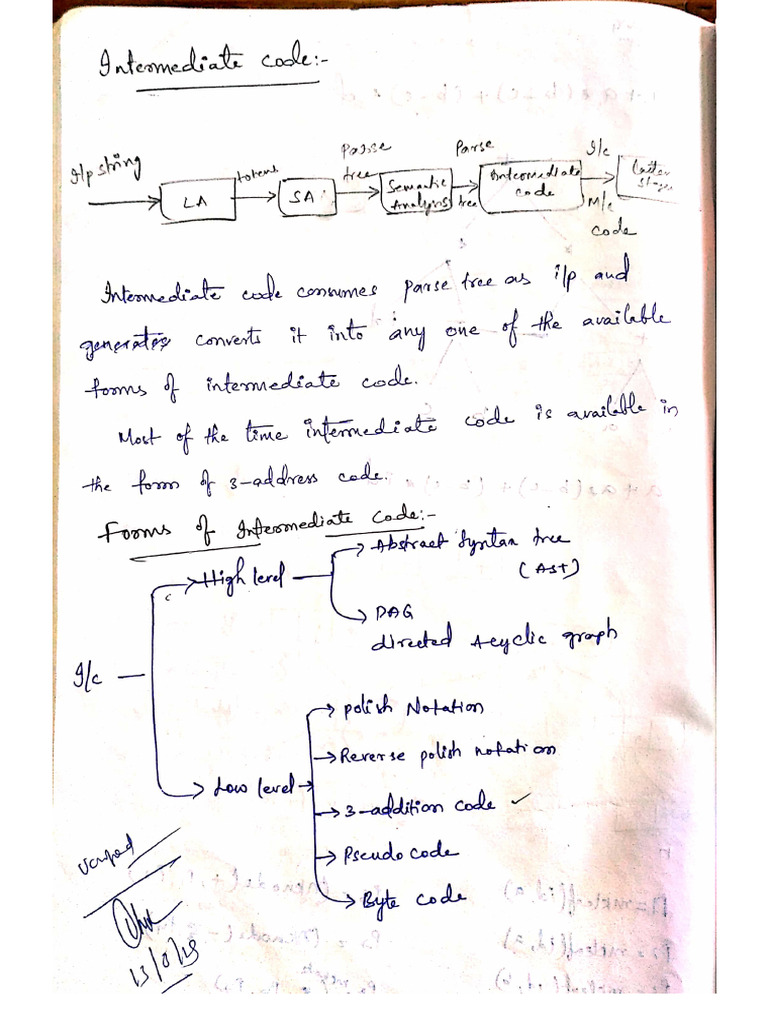 Intermediate code:-
I/p string
LA
tokens
SA
Parse
tree
Semantic
Analysis
Parse
tree
Intermediate
code
I/c
M/c
code
Intermediate code consumes parse tree as i/p and
generates converts it into any one of the available
forms of intermediate code.
Most of the time intermediate code is available in
the form of 3-address code.
Forms of Intermediate code:-
I/c
High level
Abstract Syntax tree
(AST)
DAG
directed Acyclic graph
Low level
Polish Notation
Reverse polish notation
3-addition code ✓
Pseudo code
Byte code